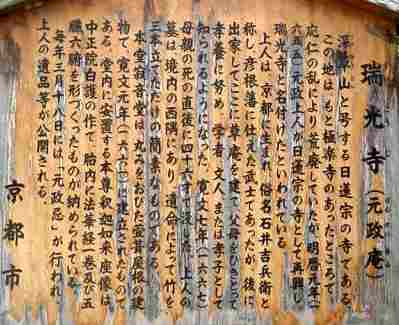 瑞光寺（元政庵）
深草山と号する日蓮宗の寺である。
この地はもと極楽寺のあったところで、
応仁の乱により荒廃していたが、明暦元年（一
六五五）元政上人が日蓮宗の寺として再興し、
瑞光寺と名付けたといわれている。
上人は、京都に生まれ、俗名石井吉兵衛と
称し、彦根藩に仕えた武士であったが、後に
出家してここに草庵を建て、父母をひきとって
孝養に努め、学者、文人、または孝子として
知られるようになった。寛文七年（一六六七）
母親の死の直後に四十六才で没した。上人の
墓は、境内の西隅にあり、遺命によって竹を
三本立てただけの簡素なものである。
本堂寂音堂は、丸みをおびた宝昔屋根の建
物で、寛文元年（一六六一）に建立されたもので
ある。堂内に安置する本尊釈迦如来座像は、
中正院日護の作で、胎内に法華経一巻及び五
臓六腑を形づくったものが納められている。
毎年三月十八日に「元政忌」が行われ、
上人の遺品等が公開される。
京都市